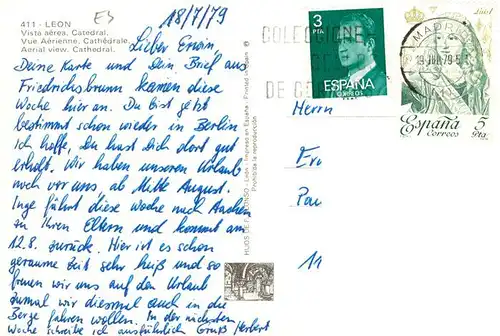 411 - LEON
Vista aérea. Catedral.
Vue Aérienne. Cathédrale.
Aerial view. Cathedral.
E3
18/7/79
Lieber Erwin,
Deine Karte und Dein Brief aus
Friedrichsbrunn kamen diese
Woche hier an. Du bist jetzt
bestimmt schon wieder in Berlin
Ich hoffe, Du hast Dich dort gut
erholt. Wir haben unseren Urlaub
noch vor uns, ab Mitte August.
Inge fährt diese Woche nach Aachen
zu ihren Eltern und kommt am
12.8. zurück. Hier ist es schon
geraume Zeit sehr heiß und so
freuen wir uns auf den Urlaub
zumal wir diesmal auch in die
Berge fahren wollen. In der nächsten
Woche schreibe ich ausführlich Gruß Herbert
HIJOS DE F. ALONSO - León - Impreso en España - Printed in Spain
Prohibida la reproducción
COLECCIONE
DE
3
PTA
ESPAÑA
CORREOS
MADRID
19 JUL 79
España
Correos
5
Pta
Herrn
Er
Pau
11